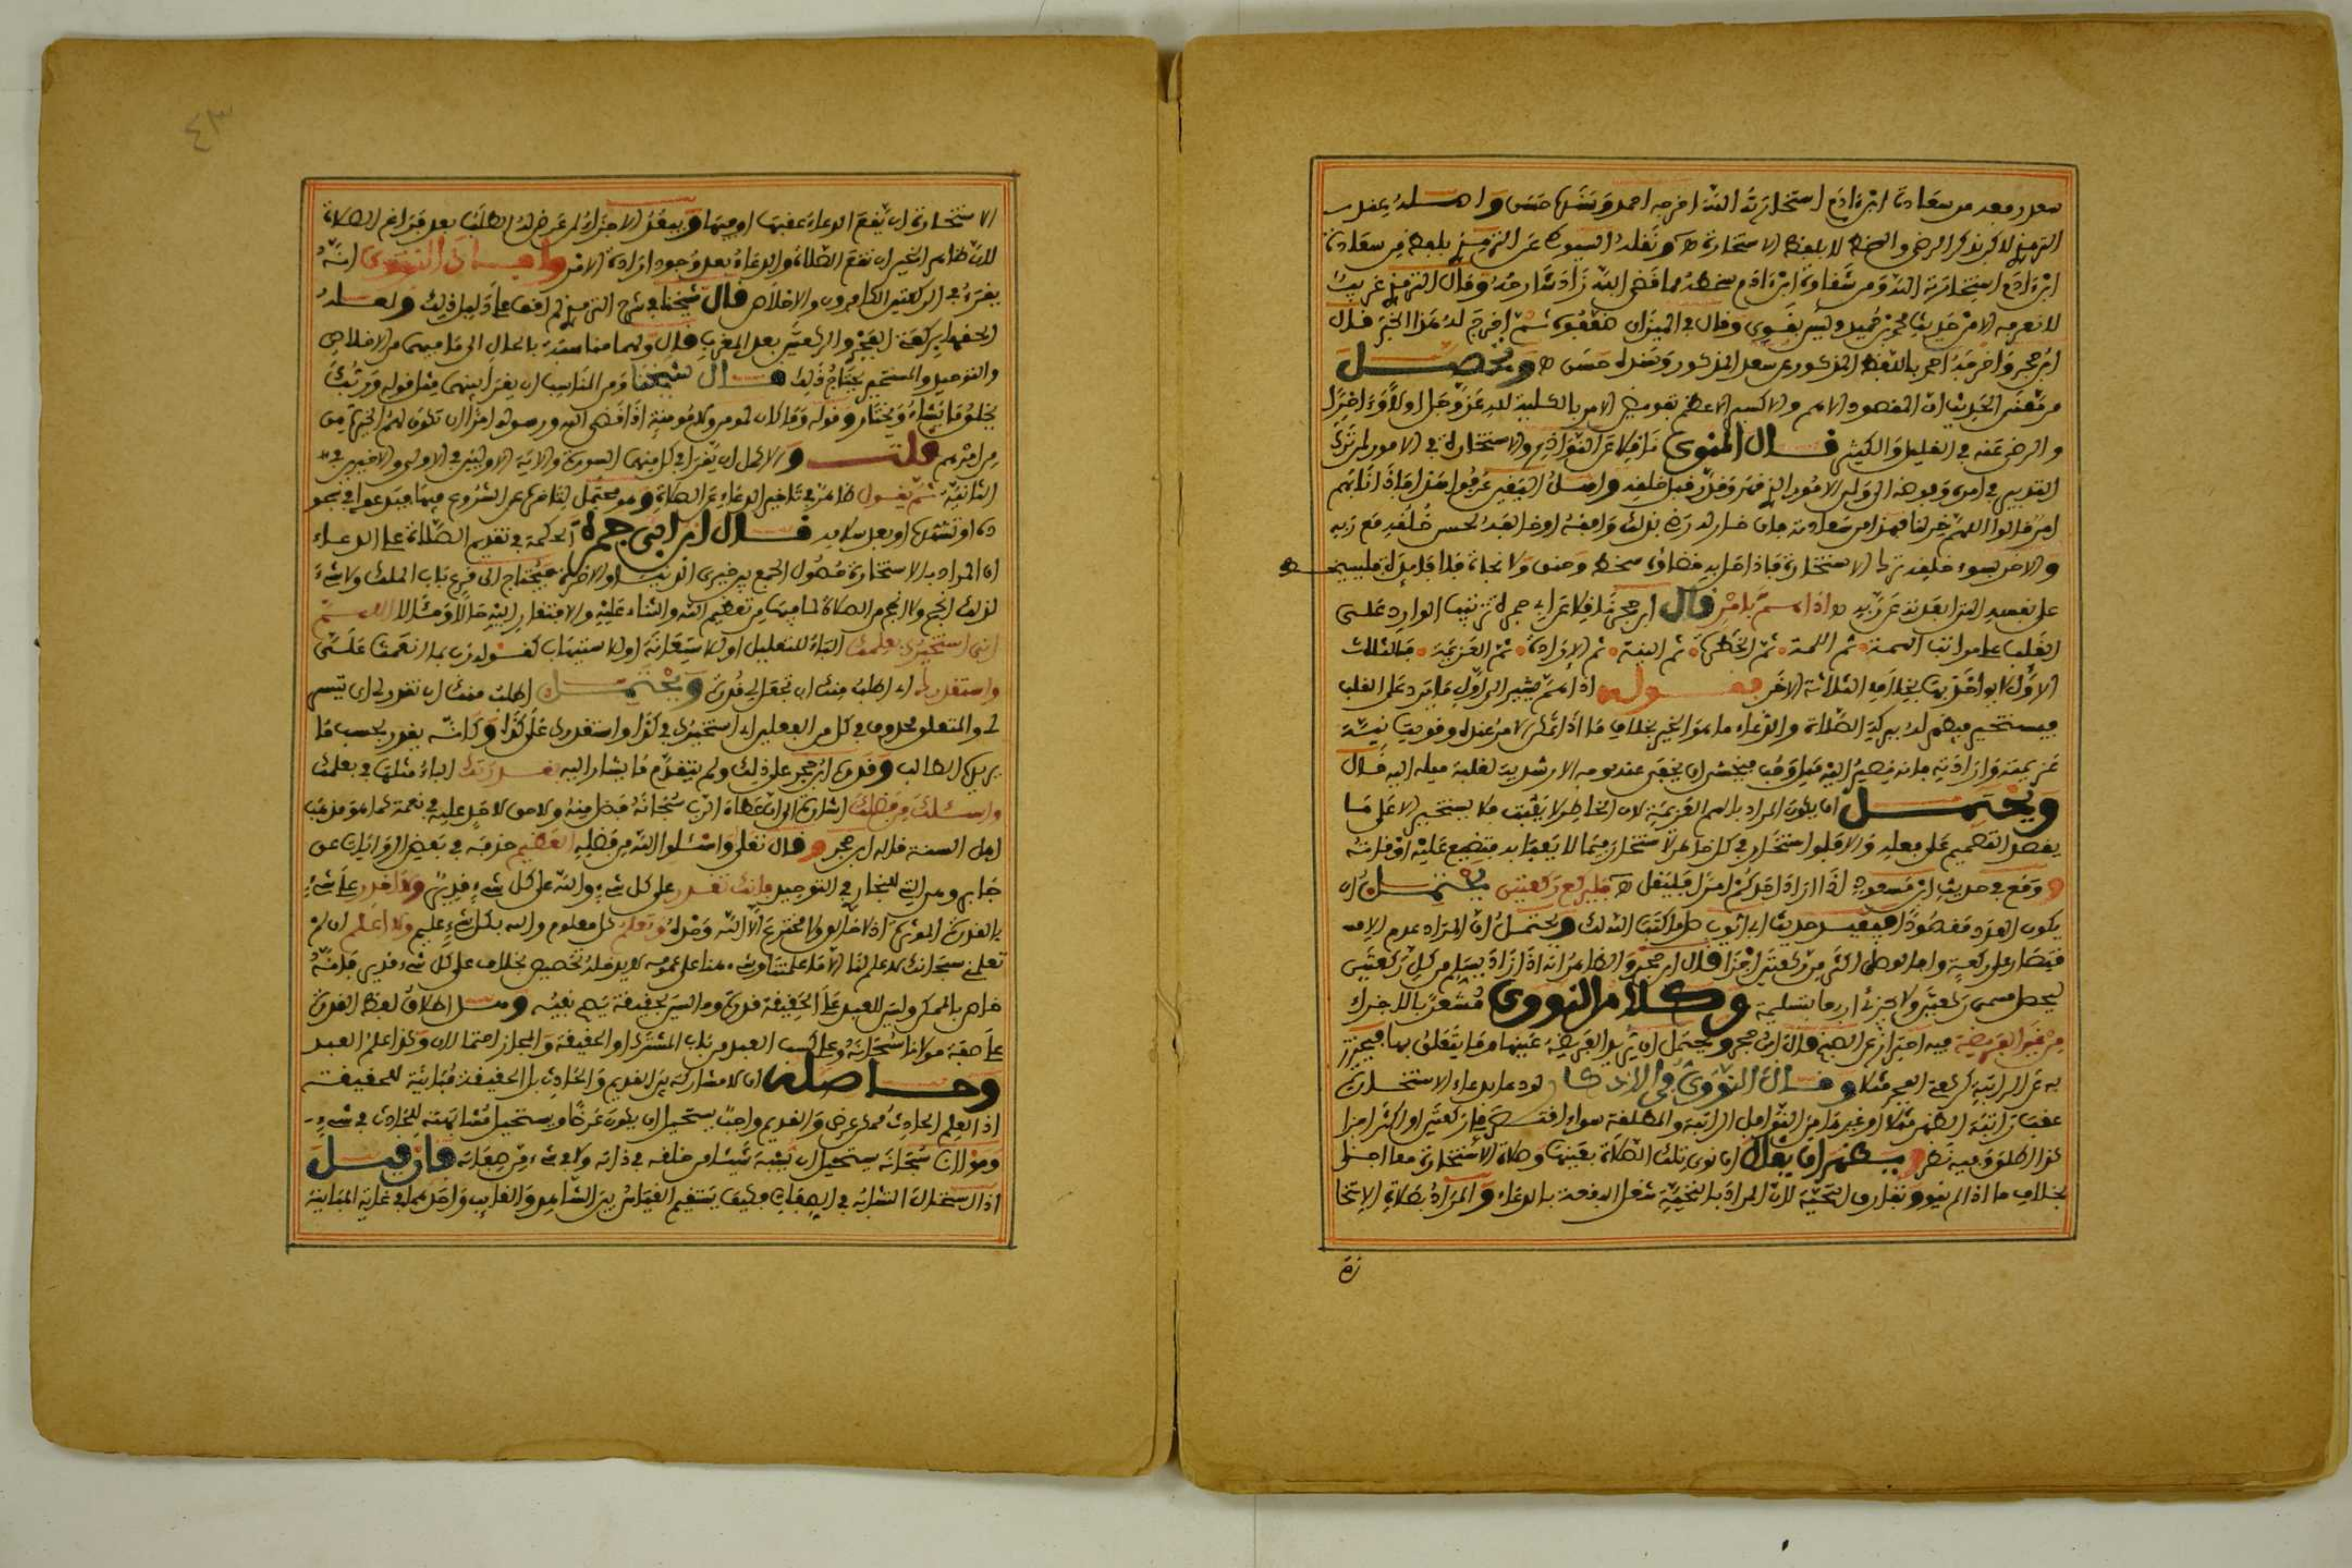 سعد رفعه من سعادة ابن ءادم استخارته الله اخرجه احمد وسنده حسن واصله عند
الترمذي لاكن بذكر الرضى والسخط لا بلفظ الاستخارة ونقله السيوطي عن الترمذي بلفظ من سعادة
ابن ءادم استخارته الله ومن شقاوة ابن ءادم سخطه مما قضى الله زاد شارحه وقال الترمذي غريب
لا نعرفه الا من حديث محمد بن حميد وليس بقوي وقال في الميزان ضعفوه ثم اخرج له هذا الخبر قال
ابن حجر واخرجه احمر باللفظ المذكور عن سعد المذكور وسنده حسن ويحصل
من معنى الحديث ان المقصود الاهم والاكسير الاعظم تفويض الامر بالكلية لله عز وجل اولا وءاخرا
والرضى عنه في القليل والكثير قال المنوي ناقلا عن النوادر والاستخارة في الامور لمن ترك
التدبير في امره وفوضه الى ولي الامور الذي دبر وقدر قبل خلقه واهل اليقين عرفوا هذا فاذا نابهم
امر قالوا اللهم خر لنا فهذا من سعادته فان خار له رضي بذلك وافقه او خالفه لحسن خلقه مع ربه
والاخر بسوء خلقه ترك الاستخارة فاذا حل به قضاؤه سخط وخنق ولا نجاة
على نفسه اذا هم بامر قال ابن حجر ناقلا عن ابن ابي جمرة ترتيب الوارد على
القلب على مراتب الهمة ثم اللمة ثم الخطرة ثم النية ثم الارادة ثم العزيمة فالثلاث
الاول لا يواخذ بها بخلاف الثلاثة الاخر فقوله اذا هم يشير الى اول ما يرد على القلب
فيستخير فيظهر له ببركة الصلاة والدعاء ما هو الخير بخلاف ما اذا تمكن الامر عنده وقويت نيته
عزيمته وارادته فانه يصير اليه ميل وحب فيخشى ان يخفى عنه وجه الارشدية لغلبة ميله اليه قال
ويحتمل ان يكون المراد بالهم العزيمة لان الخاطر لا يثبت فلا يستخير الا على ما
يقصد التصميم على فعله والا فلو استخار في كل خاطر لاستخار فيما لا يعبا به فتضيع عليه اوقاته
ووقع في حديث ابن مسعود اذا اراد احدكم امرا فليقل فليركع ركعتين يحتمل ان
يكون العدد مقصودا ففي حديث ابي ايوب صل ما كتب الله لك ويحتمل ان المراد عدم الا
قتصار على ركعة واحدة وصلى اكثر من ركعتين اجزا قال ابن حجر والظاهر انه اذا اراد يسلم من كل ركعتين
ليحصل مسمى ركعتين ولا يجزئ اربعا بتسليمة وكلام النووي مشعر بالاجزاء
من غير الفريضة فيه احتراز عن الصبح قال ابن حجر ويحتمل ان يريد الفريضة عينها وما يتعلق بها فيحترز
به عن الراتبة كركعتي الفجر مثلا وقال النووي في الاذكار لو دعا بدعاء الاستخارة
عقب راتبة الظهر مثلا او غيرها من النوافل الراتبة والمطلقة سواء اقتصر على ركعتين او اكثر اجزا
كذا اطلق وفيه نظر ويظهر ان يقال ان نوى تلك الصلاة بعينها وصلاة الاستخارة معا اجزا
بخلاف ما اذا لم ينو وتفارق التحية لان المراد بالتحية شغل البقعة بالدعاء والمراد بصلاة الاستخا
رة
٤٣
الاستخارة ان يقع الدعاء عقبها او فيها ويبعد الاجزاء لمن عرض له الطلب بعد فراغ الصلاة
لان ظاهر الخبر ان تقع الصلاة والدعاء بعد وجود ارادة الامر وافاد النووي انه
يقرء في الركعتين الكافرون والاخلاص قال شيخنا في شرح الترمذي لم اقف على دليل ذلك ولعله
الحقهما بركعتي الفجر والركعتين بعد المغرب قال ولهما مناسبة بالحال الى ما فيهما من الاخلاص
والتوحيد والمستخير يحتاج لذلك قال شيخنا ومن المناسب ان يقرا فيهما مثل قوله وربك
يخلق ما يشاء ويختار وقوله وما كان لمومن ولا مومنة اذا قضى الله ورسوله امرا ان تكون لهم الخيرة من
من امرهم قلت والاكمل ان يقرا في كل منهما السورة والاية الاوليين في الاولى والاخريين في
الثانية ثم يقول ظاهر في تاخير الدعاء عن الصلاة وهو محتمل لتاخره عن الشروع فيها فيدعوا في سجو
ده او تشهده او بعد سلامه قال ابن ابي جمرة الحكمة في تقديم الصلاة على الدعاء
ان المراد بالاستخارة حصول الجمع بين خيري الدنيا والاخرة فيحتاج الى قرع باب الملك ولا شيء
لذلك انجع ولا انجح من الصلاة لما فيها من تعظيم الله والثناء عليه والافتقار اليه حالا ومئالا اللهم
اني استخيرك بعلمك الباء للتعليل او للاستعانة او للاستيهاب كقوله رب بما انعمت علي
واستقدرك اي اطلب منك ان تجعل لي قدرة ويحتمل اطلب منك ان تقدر لي اي تيسر
لي والمتعلق محذوف في كل من الفعلين اي استخيرك في كذا واستقدرك على كذا وكانه يقدر بحسب ما
يريد الطالب وقدره ابن حجر على ذلك ولم يتقدم ما يشار اليه بقدرتك الباء مثلها في بعلمك
واسئلك من فضلك اشارة الى ان عطاء الرب سبحانه فضل منه ولا حق لاحد عليه في نعمة كما هو مذهب
اهل السنة قاله ابن حجر وقال تعلى واسئلوا الله من فضله العظيم حذفه في بعض الروايات عن
جابر وهي التي للبخاري في التوحيد فانك تقدر على كل شيء والله على كل شيء قدير ولا اقدر على شيء
بالقدرة الموثرة اذ لا خالق ولا مخترع الا الله وحده وتعلم كل معلوم والله بكل شيء عليم ولا اعلم ان لم
تعلمني سبحانك لا علم لنا الا ما علمتنا
خاص بالممكن وليس للعبد على الحقيقة قدرة وهل اطلاق لفظ القدرة
على صفة مولانا سبحانه وعلى كسب العبد من باب المشترك او الحقيقة والمجاز احتمالان وكذا علم العبد
وحاصله ان لا مشاركة بين القديم والحادث بل الحقيقة مباينة للحقيقة
اذ العلم الحادث ممكن عرض والقديم واجب يستحيل ان يكون عرضا ويستحيل مشابهته للحادث في شيء
ومولانا سبحانه يستحيل ان يشبه شيئا من خلقه في ذاته ولا في شيء من صفاته فان قيل
اذا استحال التشابه في الصفات فكيف يستقيم القياس بين الشاهد والغايب واحدهما في غاية المباينة